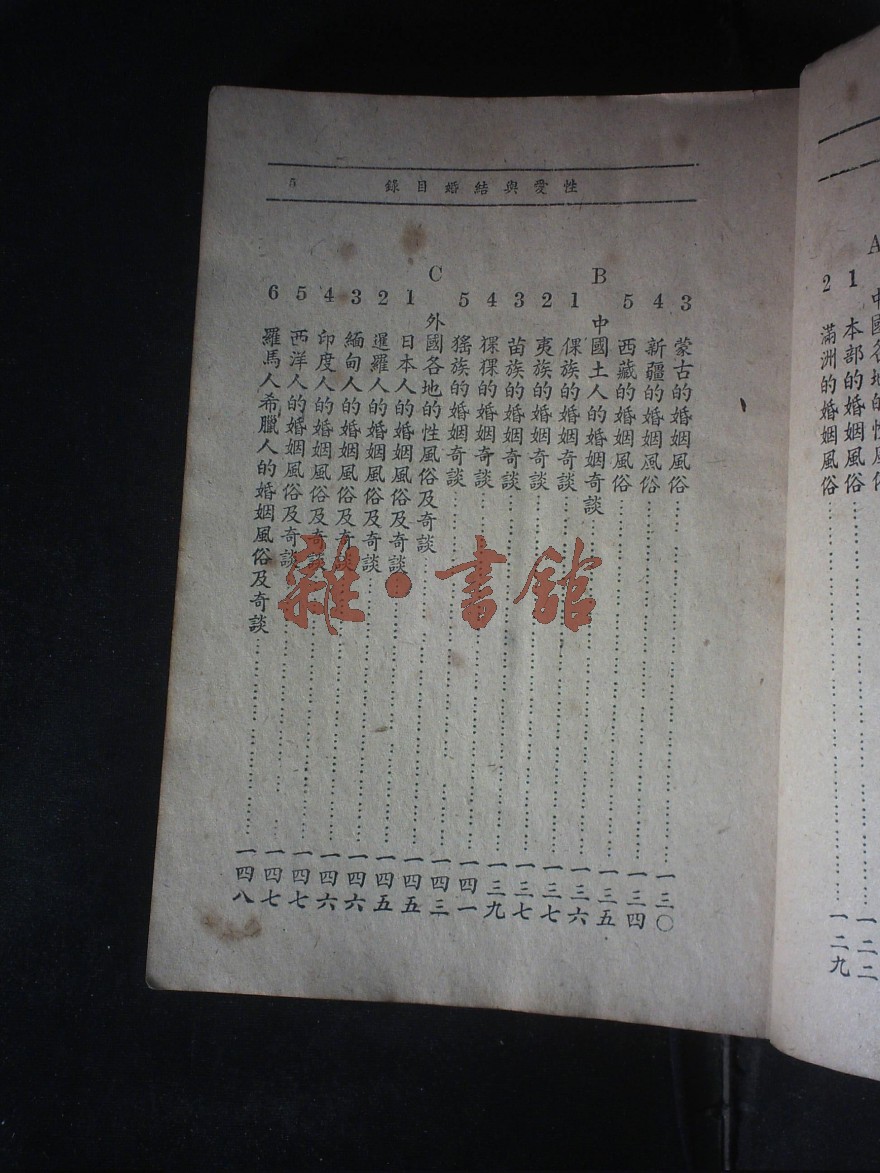 A 中國各地的性風俗
1 本部的婚姻風俗……一二二
2 滿洲的婚姻風俗……一二九
性愛與結婚目錄 5
3 蒙古的婚姻風俗……一三〇
4 新疆的婚姻風俗……一三四
5 西藏的婚姻風俗……一三五
B 中國土人的婚姻奇談……一三六
1 倮族的婚姻奇談……一三七
2 夷族的婚姻奇談……一三七
3 苗族的婚姻奇談……一三九
4 猓猓的婚姻奇談……一四一
5 猺族的婚姻奇談……一四三
C 外國各地的性風俗及奇談……一四五
1 日本人的婚姻風俗及奇談……一四五
2 暹羅人的婚姻風俗及奇談……一四六
3 緬甸人的婚姻風俗及奇談……一四六
4 印度人的婚姻風俗及奇談……一四七
5 西洋人的婚姻風俗及奇談……一四七
6 羅馬人希臘人的婚姻風俗及奇談……一四八
雜·書館